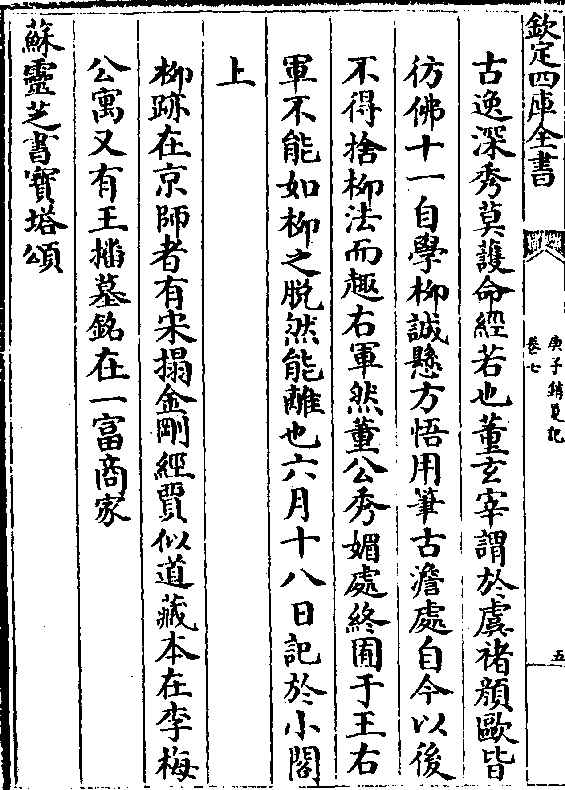 欽定四庫全書
庚子銷夏記
卷七
五
古逸深秀莫䕶命經若也董玄宰謂於虞褚顔歐皆
彷佛十一自學柳誠懸方悟用筆古澹處自今以後
不得捨柳法而趣右軍然董公秀媚處終囿于王右
軍不能如柳之脱然能離也六月十八日記於小閣
上
柳跡在京師者有宋搨金剛經賈似道藏本在李梅
公寓又有王播墓銘在一富商家
蘇靈芝書寶塔頌